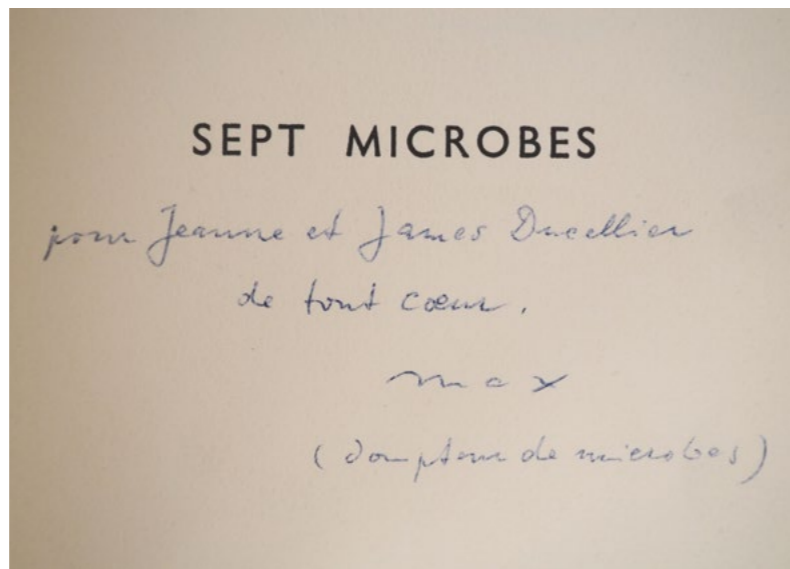 SEPT MICROBES
pour Jeanne et James Ducellier
de tout cœur.
max
(dompteur de microbes)